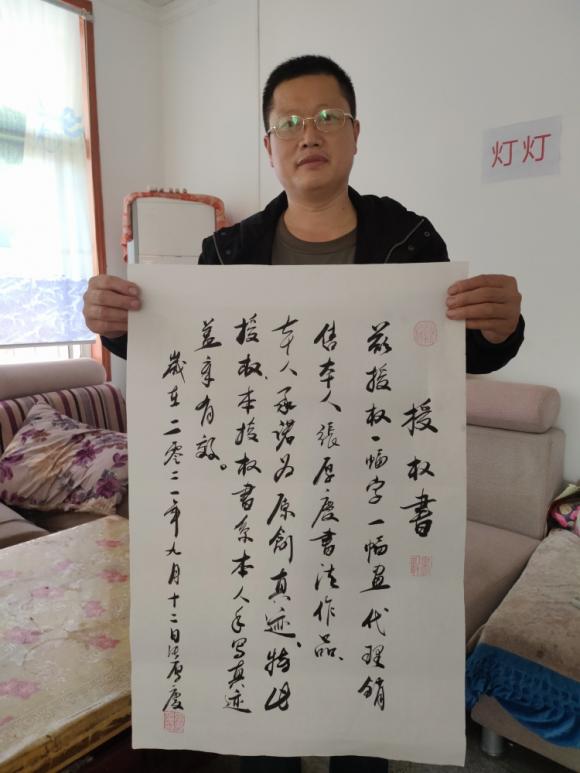 灯灯
授权書
兹授权一幅字一幅畫代理銷
售本人張厚慶書法作品、
本人承诺为原創真迹、特此
授权、本授权書系本人手写真迹
盖章有效。
歲在二零二一年九月十二日張厚慶